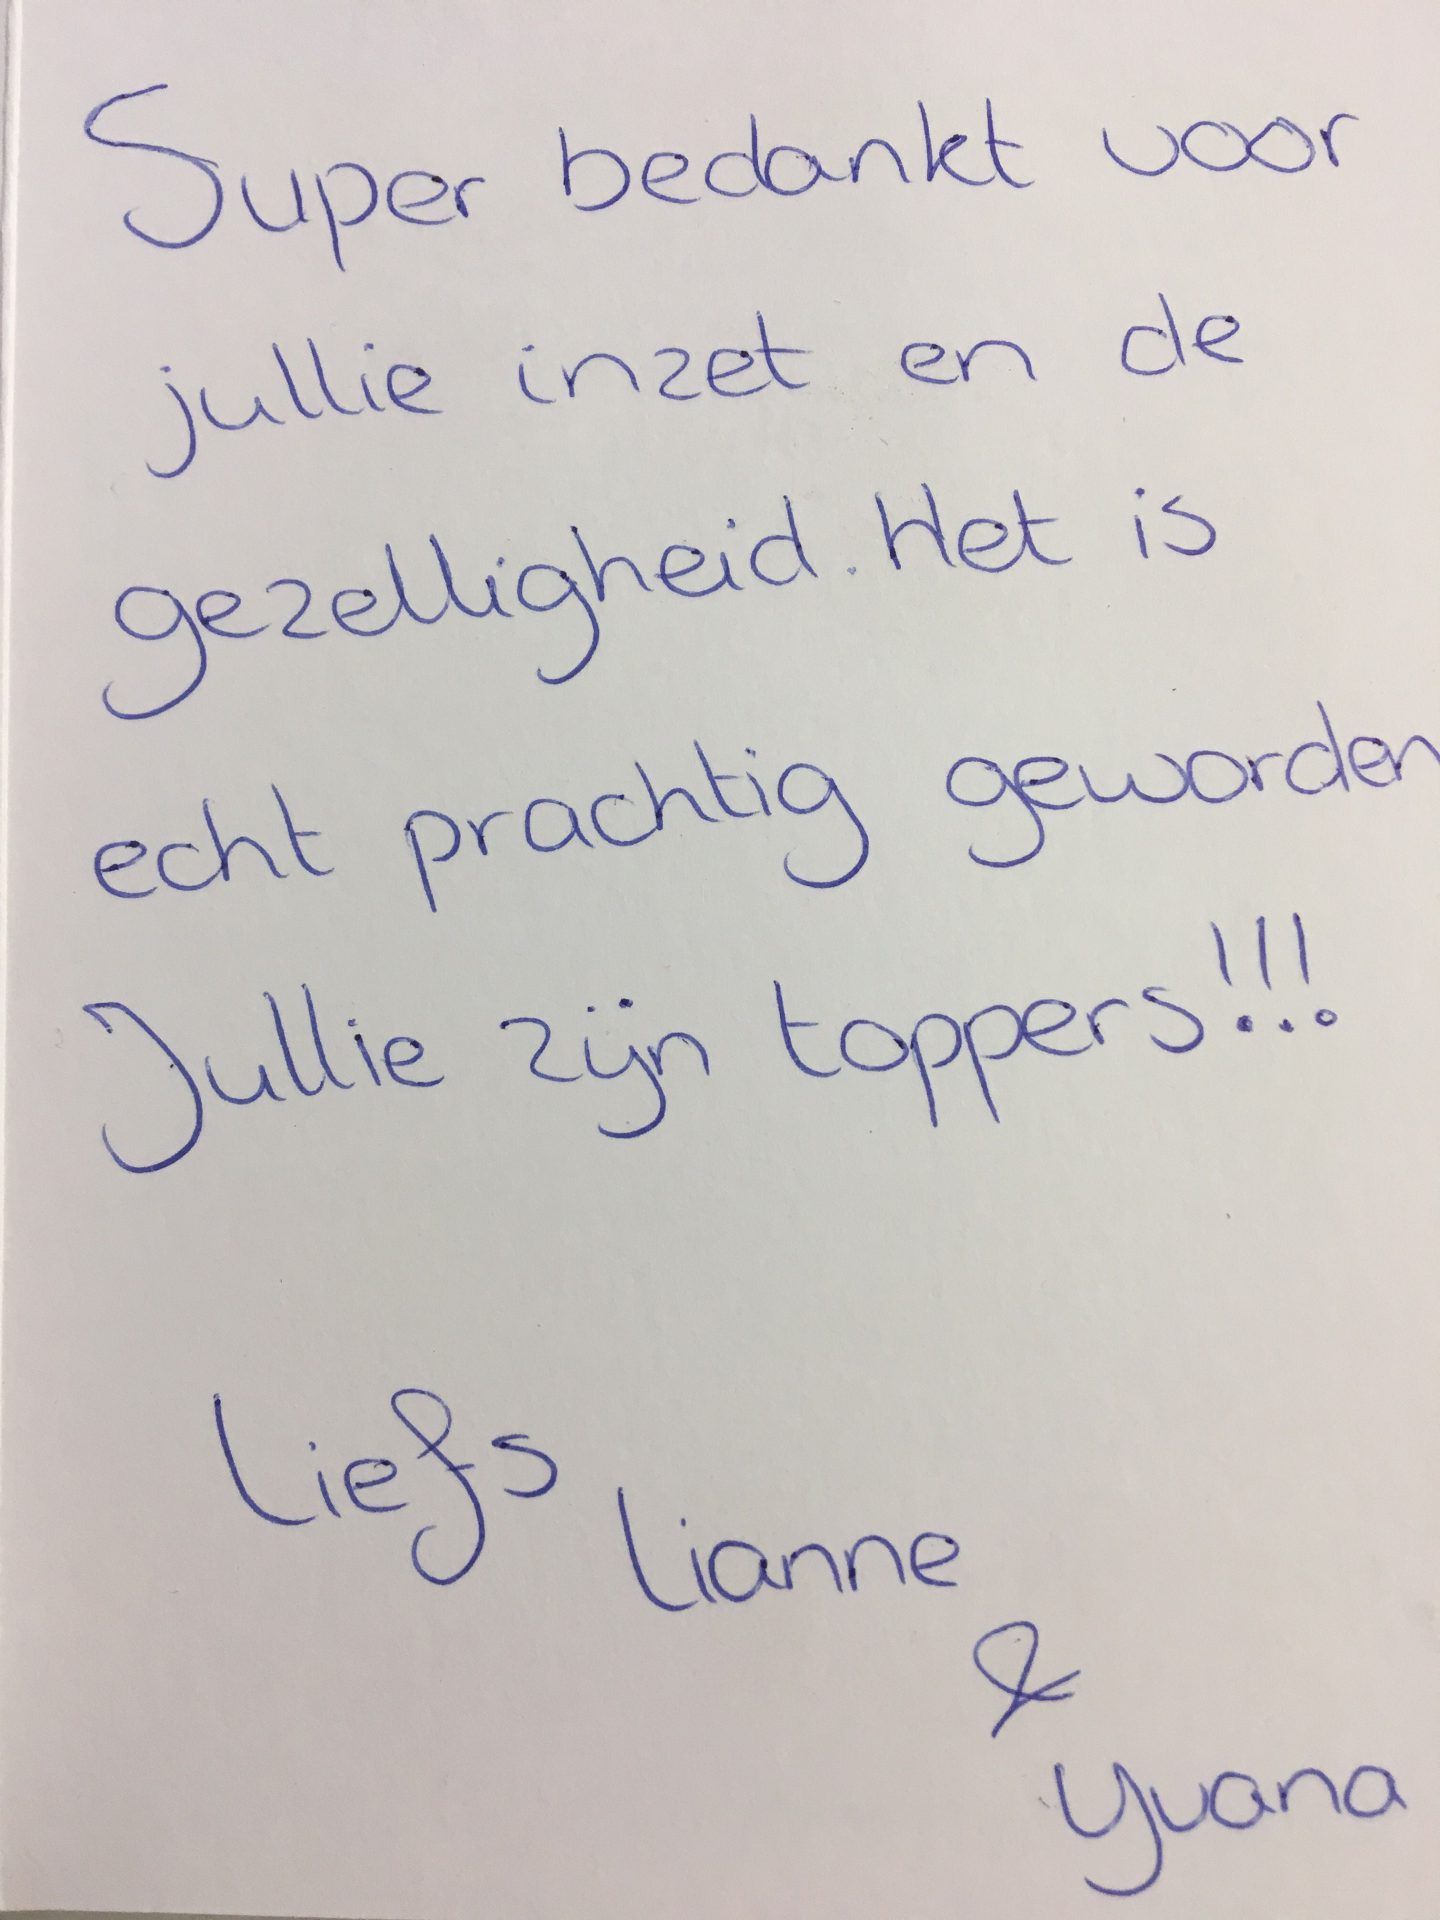 Super bedankt voor
jullie inzet en de
gezelligheid. Het is
echt prachtig geworden
Jullie zijn toppers!!!
Liefs
Lianne
&
Yvana